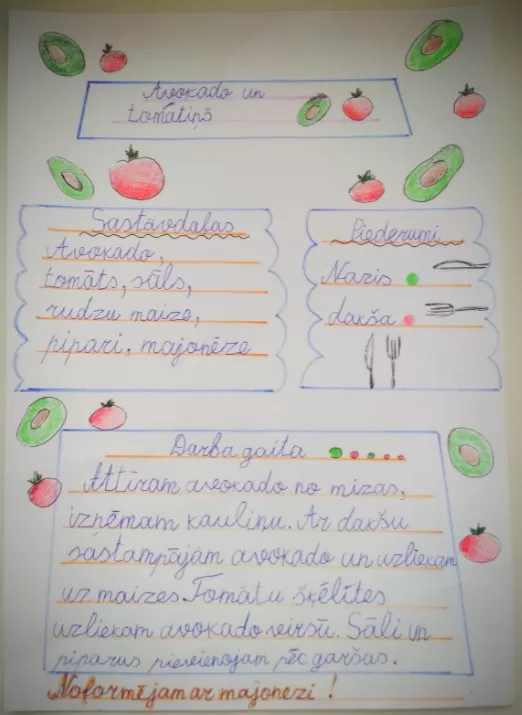 Avokado un
tomātiņš
Sastāvdaļas
Avokado,
tomāts, sāls,
rudzu maize,
pipari, majonēze
Piederumi
Nazis
dakša
Darba gaita
Attīram avokado no mizas,
izņēmam kauliņu. Ar dakšu
sastampējam avokado un uzliekam
uz maizes. Tomātu šķēlītes
uzliekam avokado virsū. Sāli un
piparus pievienojam pēc garšas.
Noformējam ar majonezi !